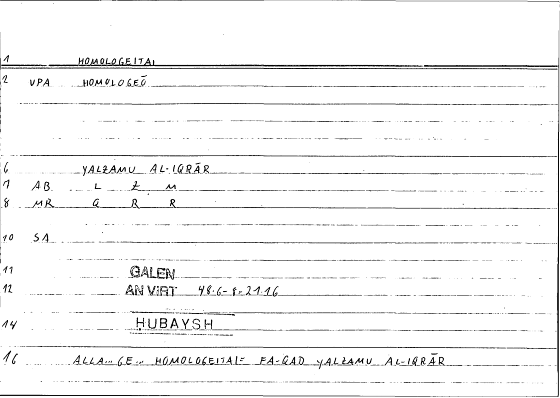 1 HOMOLOGEITAI
2 VPA HOMOLOGEŌ
6 YALZAMU AL-IQRĀR
7 AB L Z M
8 MR Q R R
10 SA
11 GALEN
12 AN VIRT 48.6-8=21.16
14 HUBAYSH
16 ALLA... GE... HOMOLOGEITAI= FA-QAD YALZAMU AL-IQRĀR